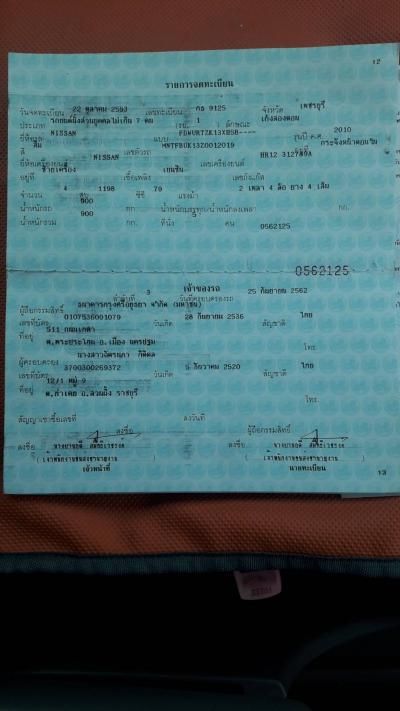 12
รายการจดทะเบียน
วันจดทะเบียน 22 ตุลาคม 2553 เลขทะเบียน กธ 9125 จังหวัด เพชรบุรี
ประเภท รถยนต์นั่งส่วนบุคคลไม่เกิน 7 คน 1 ลักษณะ เก๋งสองตอน
ยี่ห้อรถ NISSAN แบบ FDWURTZK13XB5B---- รุ่นปี ค.ศ. 2010
สี ส้ม เลขตัวรถ MNTFBUK13Z0012019
ยี่ห้อเครื่องยนต์ NISSAN เลขเครื่องยนต์ HR12 312789A
อยู่ที่ เชื้อเพลิง เบนซิน เลขถังแก๊ส
จำนวน 4 สูบ 1198 ซีซี 79 แรงม้า 2 เพลา 4 ล้อ ยาง 4 เส้น
น้ำหนักรถ 900 กก. น้ำหนักบรรทุก/น้ำหนักลงเพลา กก.
น้ำหนักรวม 900 กก. ที่นั่ง คน 0562125
0562125
เจ้าของรถ
ลำดับที่ 3 วันที่ครอบครองรถ 25 กันยายน 2562
ผู้ถือกรรมสิทธิ์ ธนาคารกรุงศรีอยุธยา จำกัด (มหาชน)
เลขที่บัตร 0107536001079 วันเกิด 28 กันยายน 2536 สัญชาติ ไทย
ที่อยู่ 511
ต.พระประโทน อ.เมือง นครปฐม โทร.
ผู้ครอบครอง
เลขที่บัตร 3700300269372 วันเกิด 5 ธันวาคม 2520 สัญชาติ ไทย
ที่อยู่ 12/1 หมู่ 9
ต.ท่าเคย อ.สวนผึ้ง ราชบุรี โทร.
สัญญาเช่าซื้อเลขที่ ลงวันที่ ผู้ถือกรรมสิทธิ์
ลงชื่อ
ลงชื่อ ลงชื่อ
(เจ้าพนักงานขนส่งชำนาญงาน (เจ้าพนักงานขนส่งชำนาญงาน
เจ้าหน้าที่ นายทะเบียน
13